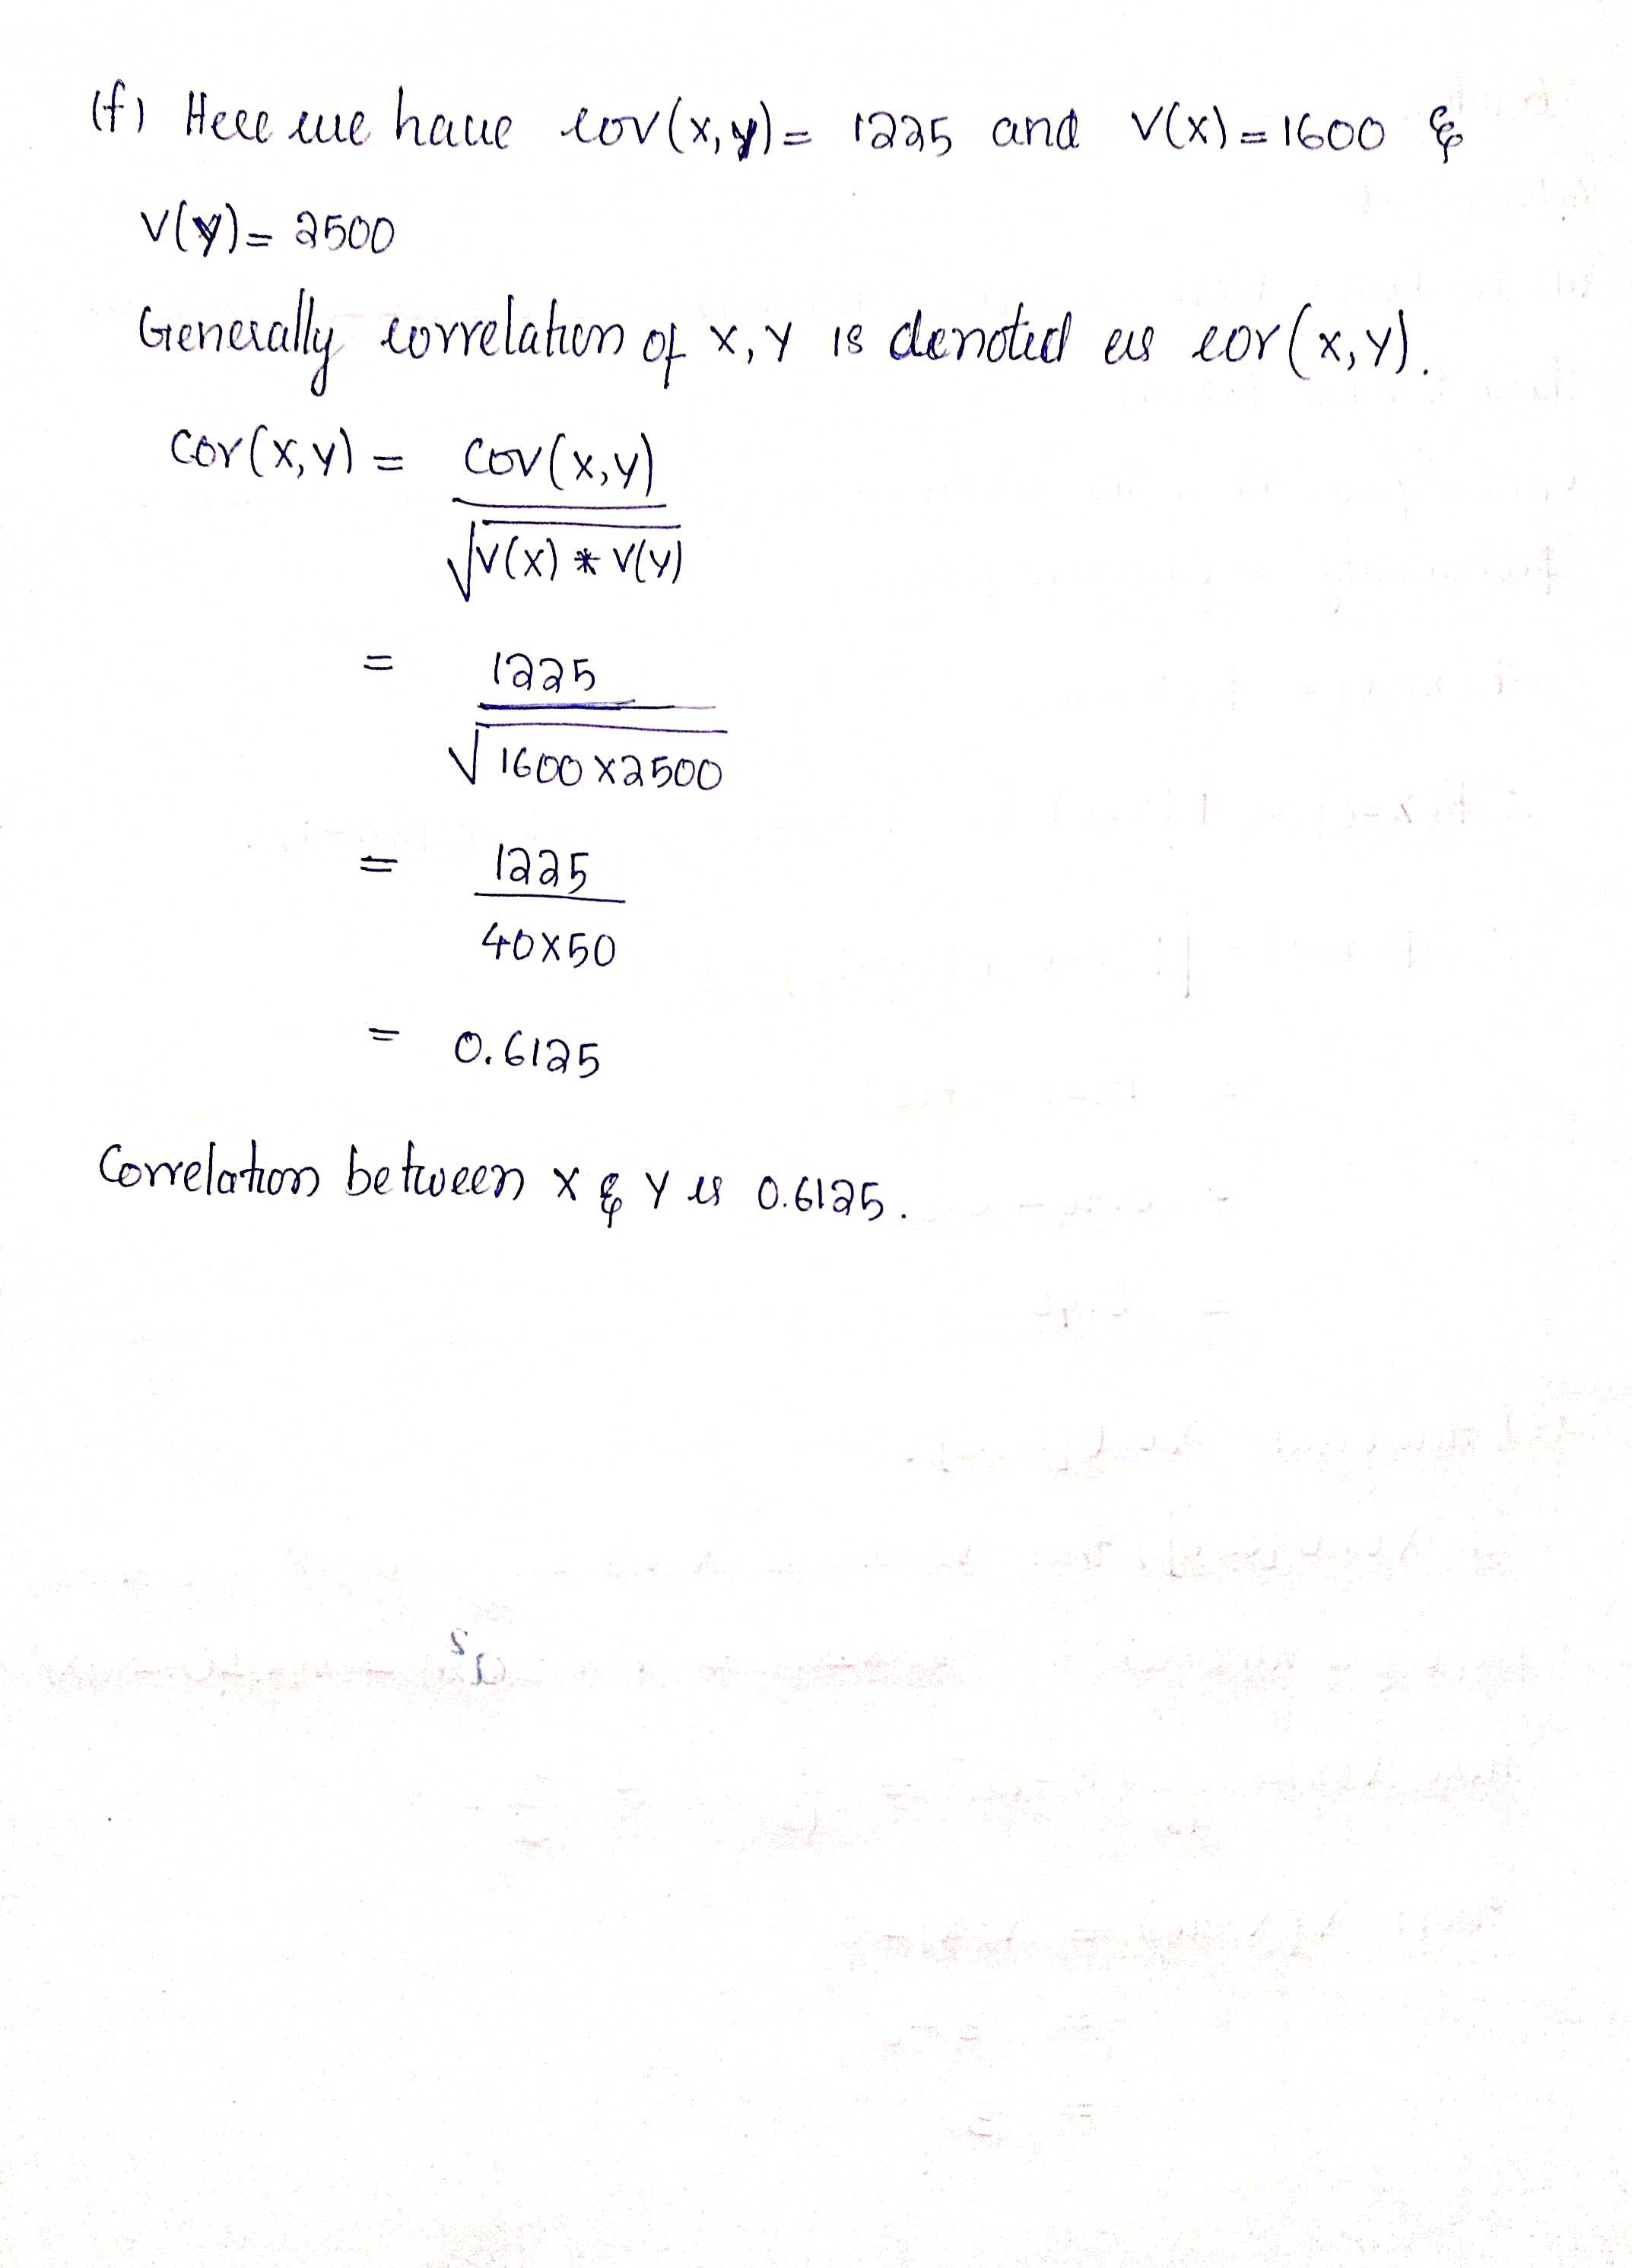 (f) Here we have cov(x,y) = 1225 and V(x) = 1600 &
V(y) = 2500
Generally correlation of x, y is denoted as cor(x,y).
Cor(x,y) = Cov(x,y)
√V(x) * V(y)
= 1225
√1600×2500
= 1225
40×50
= 0.6125
Correlation between x & y is 0.6125.